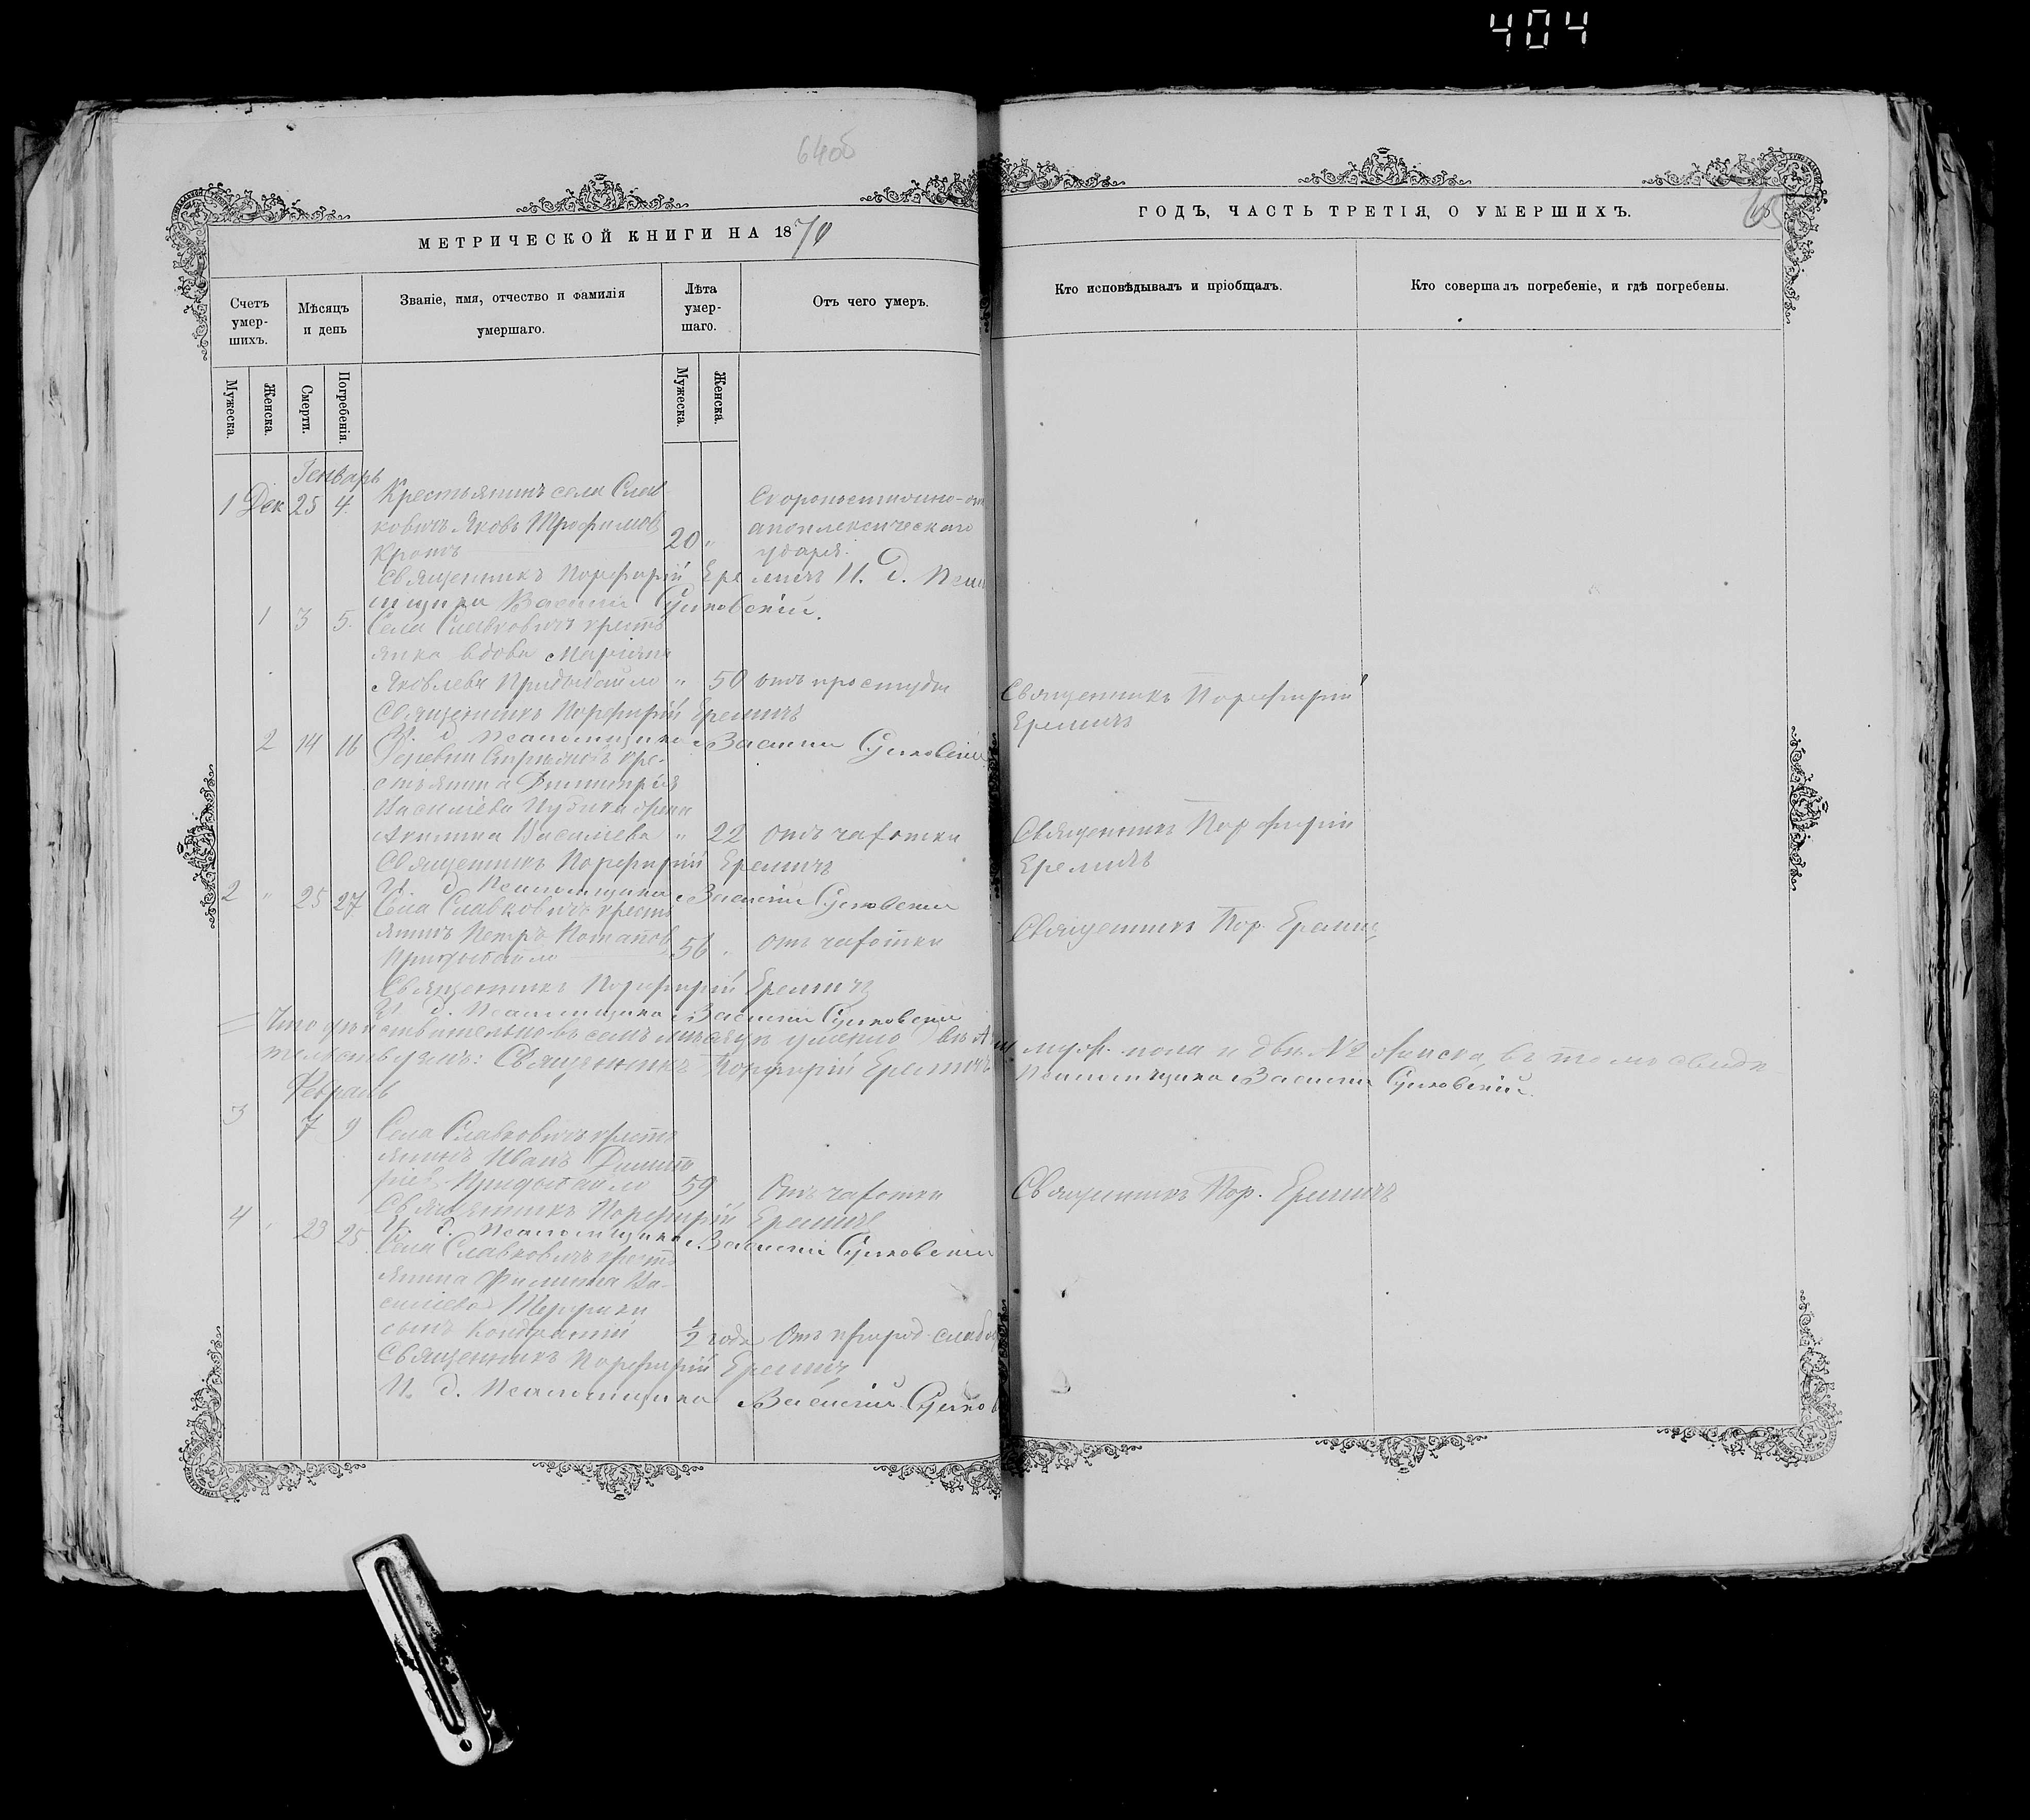 404
64об
МЕТРИЧЕСКОЙ КНИГИ НА 1870
Счетъ умер-шихъ.
Мѣсяцъ и день
Званіе, имя, отчество и фамилія умершаго.
Лѣта умер-шаго.
Отъ чего умеръ.
Мужеска.
Женска.
Смерти.
Погребенія.
Мужеска.
Женска.
Генварь
1 Дек 25 4 Крестьянинъ села Слав- Скоропостижно-отъ
ковичъ Яковъ Трофимов апоплексическаго
Кротъ 20 " удара.
Священникъ Порфирій Еремичъ И. д. Псало
мщика Василій
1 3 5. Села Славковичъ кресть
янка вдова Маріяна
Яковлева Придыбайло " 50 отъ простуды
Священникъ Порфирій Еремичъ
2 14 16 И. д. Псаломщика Василій
Деревни кре-
стьянина Димитрія
Василіева жена
Акилина Васильева " 22 Отъ чахотки
Священникъ Порфирій Еремичъ
И. д. Псаломщика Василій
2 " 25 27 Села Славковичъ кресть
янинъ Петръ Потапов
Придыбайло 56 " Отъ чахотки
Священникъ Порфирій Еремичъ
И. д. Псаломщика Василій
Что дѣйствительно въ семъ мѣсяцѣ умерло два
тельствуемъ: Священникъ Порфирій Еремичъ
Февраль
3 7 9 Села Славковичъ кресть
янинъ Иванъ Димит
ріев Придыбайло 59 " Отъ чахотки
Священникъ Порфирій Еремичъ
4 " 23 25 И. д. Псаломщика Василій
Села Славковичъ кресть
янина Филиппа Ва-
силіева
сынъ Кондратій 1/2 года Отъ природ. слабо
Священникъ Порфирій Еремичъ
И. д. Псаломщика Василій
65
ГОДЪ, ЧАСТЬ ТРЕТІЯ, О УМЕРШИХЪ.
Кто исповѣдывалъ и пріобщалъ.
Кто совершалъ погребеніе, и гдѣ погребены.
Священникъ Порфирій
Еремичъ
Священникъ Порфирій
Еремичъ
Священникъ Пор. Еремич
муж. пола и два № 2 женска, въ томъ свидѣ-
Псаломщика Василій
Священникъ Пор. Еремичъ